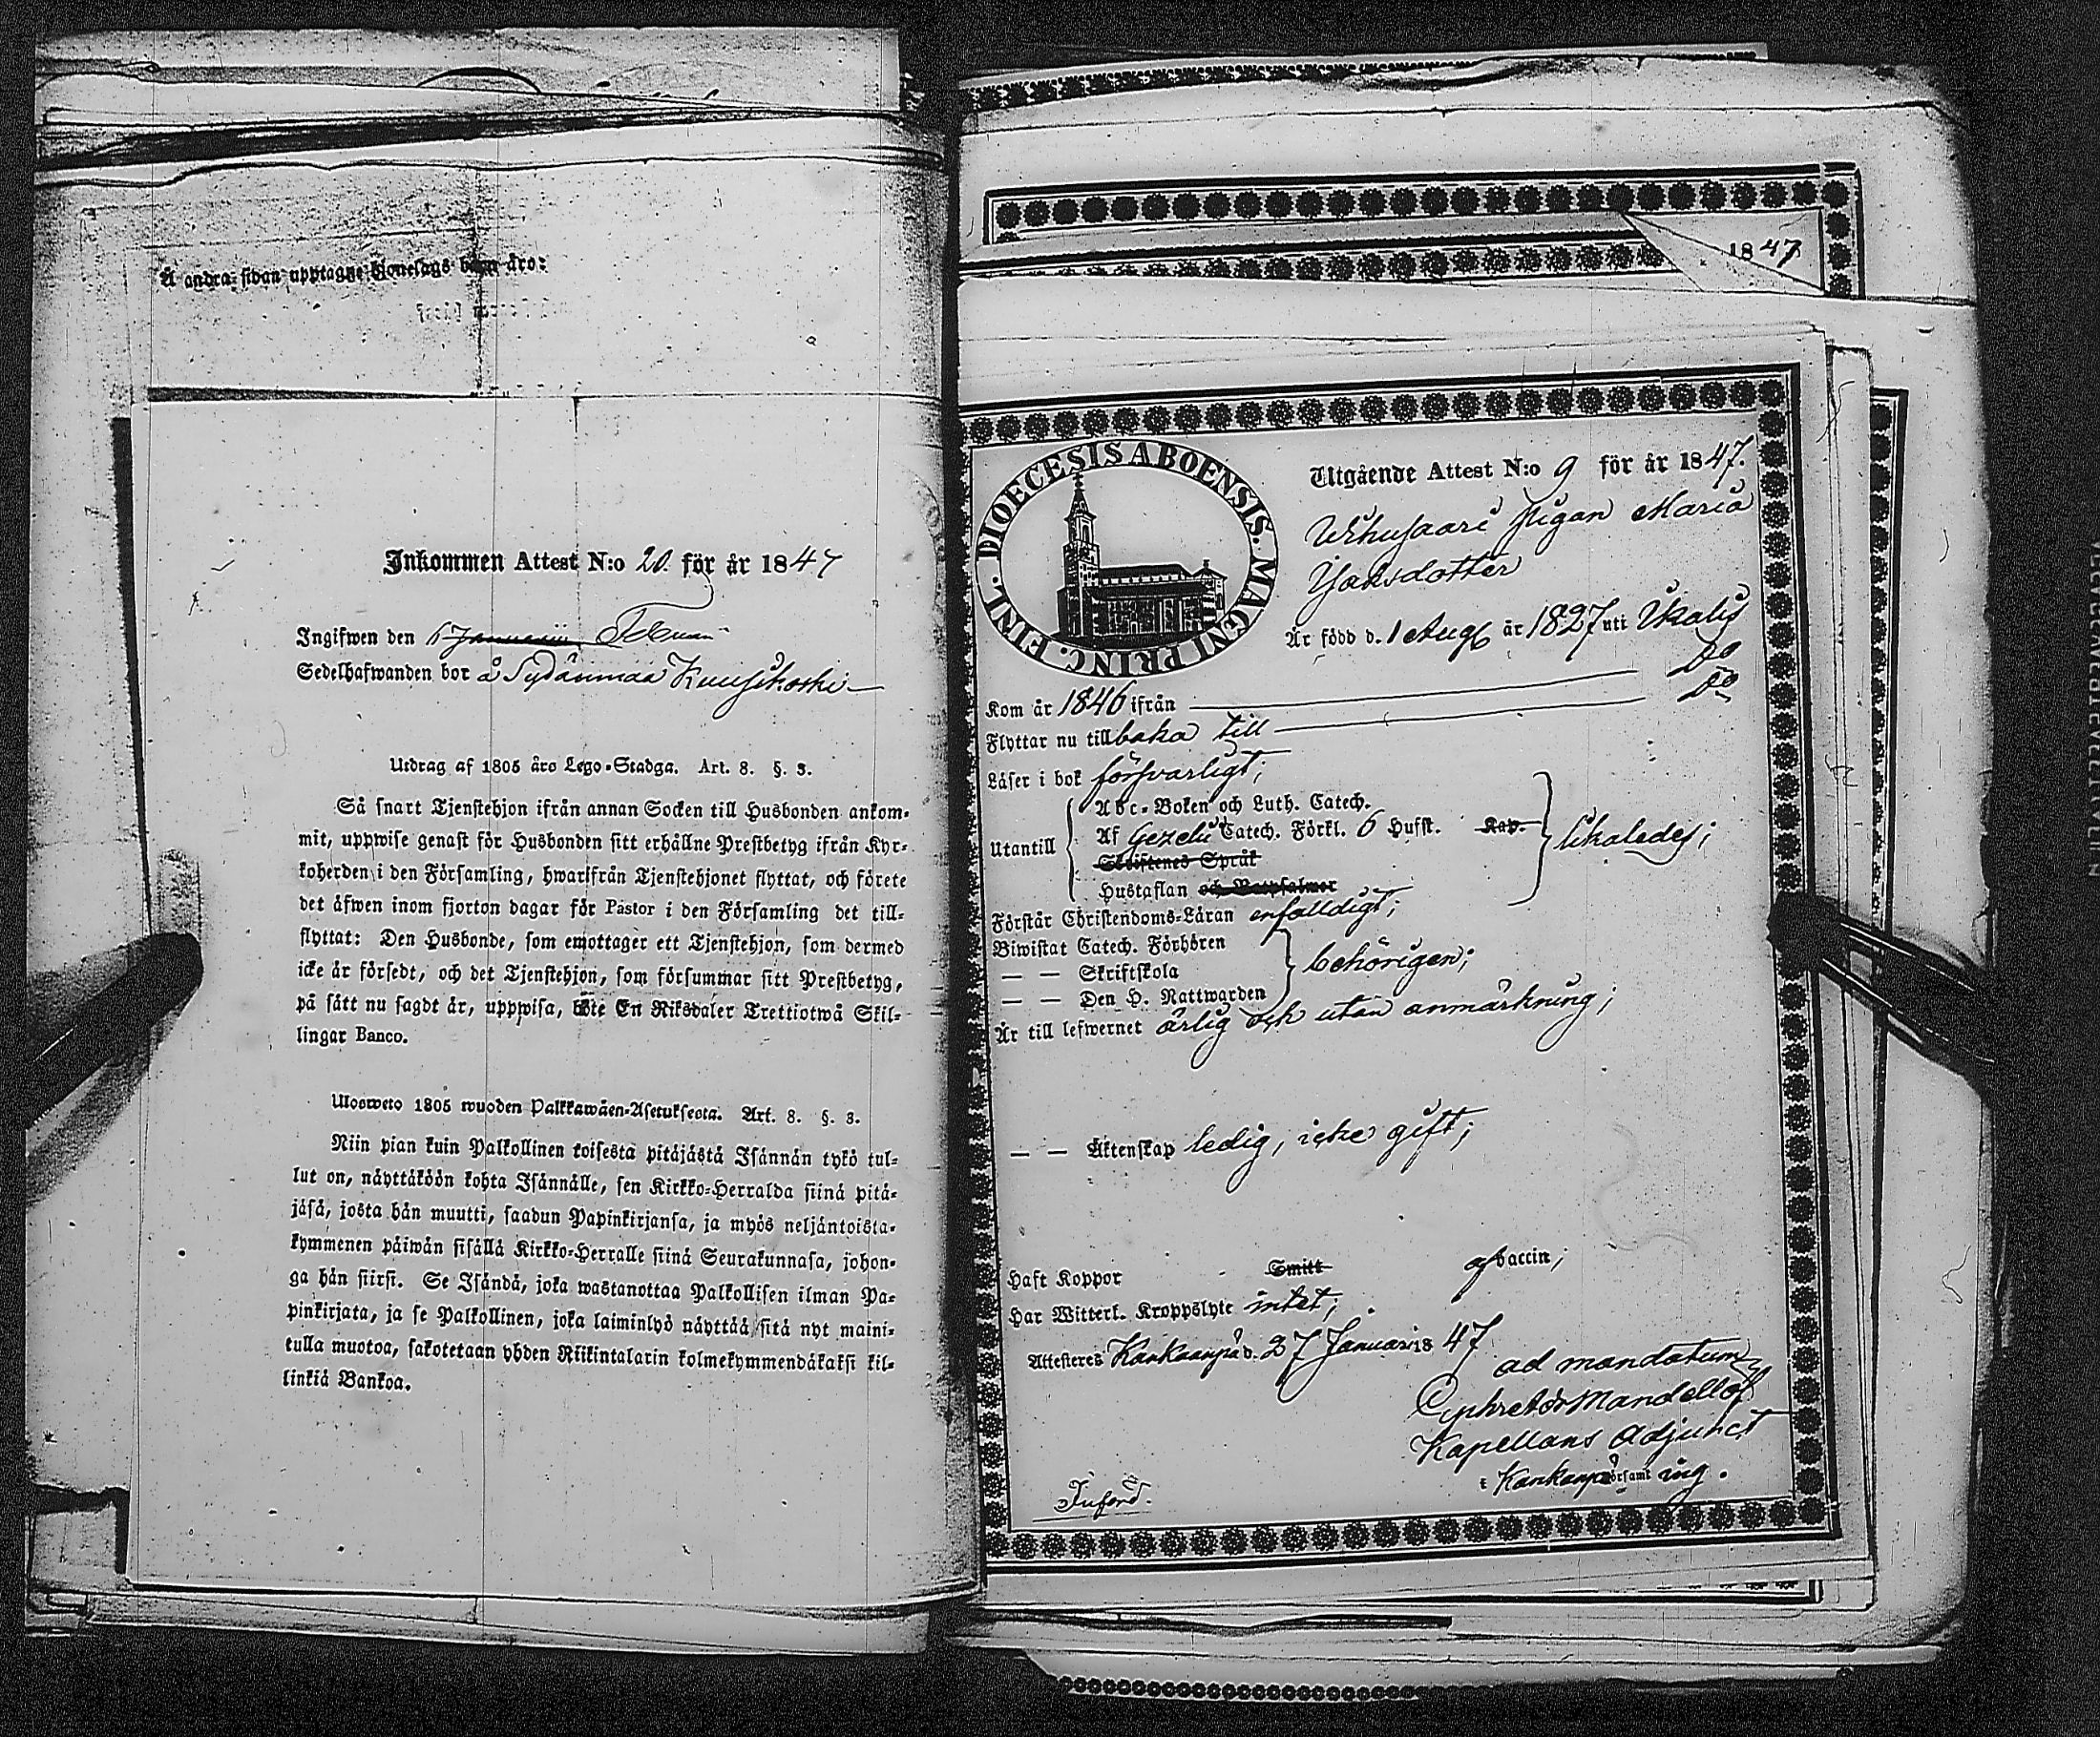 Å andra sidan upptagne Hionelags barn äro:
Inkommen Attest N:o 20. för år 1847
Ingifwen den 6 Januarii Februari
Sedelhafwanden bor å Sydänmaa Kuusikoski
Utdrag af 1805 års Lego-Stadga. Art. 8. §. 3.
Så snart Tjenstehjon ifrån annan Socken till Husbonden ankom-
mit, uppwise genast för Husbonden sitt erhållne Prestbetyg ifrån Kyr-
koherden i den Församling, hwarifrån Tjenstehjonet flyttat, och förete
det äfwen inom fjorton dagar för Pastor i den Församling det till-
flyttat: Den Husbonde, som emottager ett Tjenstehjon, som dermed
icke är försedt, och det Tjenstehjon, som försummar sitt Prestbetyg,
på sätt nu sagdt är, uppwisa, böte En Riksdaler Trettiotwå Skil-
lingar Banco.
Ulosweto 1805 wuoden Palkkawäen-Asetuksesta. Art. 8. §. 3.
Niin pian kuin Palkollinen toisesta pitäjästä Isännän tykö tul-
lut on, näyttäköön kohta Isännälle, sen Kirkko-Herralda siinä pitä-
jäsä, josta hän muutti, saadun Papinkirjansa, ja myös neljäntoista-
kymmenen päiwän sisällä Kirkko-Herralle siinä Seurakunnasa, johon-
ga hän siirsi. Se Isändä, joka wastanottaa Palkollisen ilman Pa-
pinkirjata, ja se Palkollinen, joka laiminlyö näyttää sitä nyt maini-
tulla muotoa, sakotetaan yhden Riikintalarin kolmekymmendäkaksi kil-
linkiä Bankoa.
1847
DIOECESIS ABOENSIS. MAGNI PRINC. FINL.
Utgående Attest N:o 9 för år 1847.
Uhusaari Pigan Maria
Isaksdotter
Är född d. 1 Aug år 1827 uti Ikalis
Kom år 1846 ifrån Do
Flyttar nu tillbaka till Do
Läser i bok försvarligt;
Utantill
Abc-Boken och Luth. Catech.
Af Gezelii Catech. Förkl. 6 Hufst. Kap.
Skriftenes Språk
Hustaflan och Botpsalmer
likaledes;
Förstår Christendoms-Läran enfalldigt;
Biwistat Catech. Förhören
— — Skriftskola
— — Den H. Nattwarden
behörigen;
Är till lefwernet ärlig och utan anmärkning;
— — Äktenskap ledig, icke gift;
Haft Koppor Smitt af Vaccin;
Har Witterl. Kroppslyte intet;
Attesteres Kankaanpä d. 27 Januari 18 47
ad mandatum
Mandellöf
Kapellans Adjunct
i Kankanpä församling.
Införd.